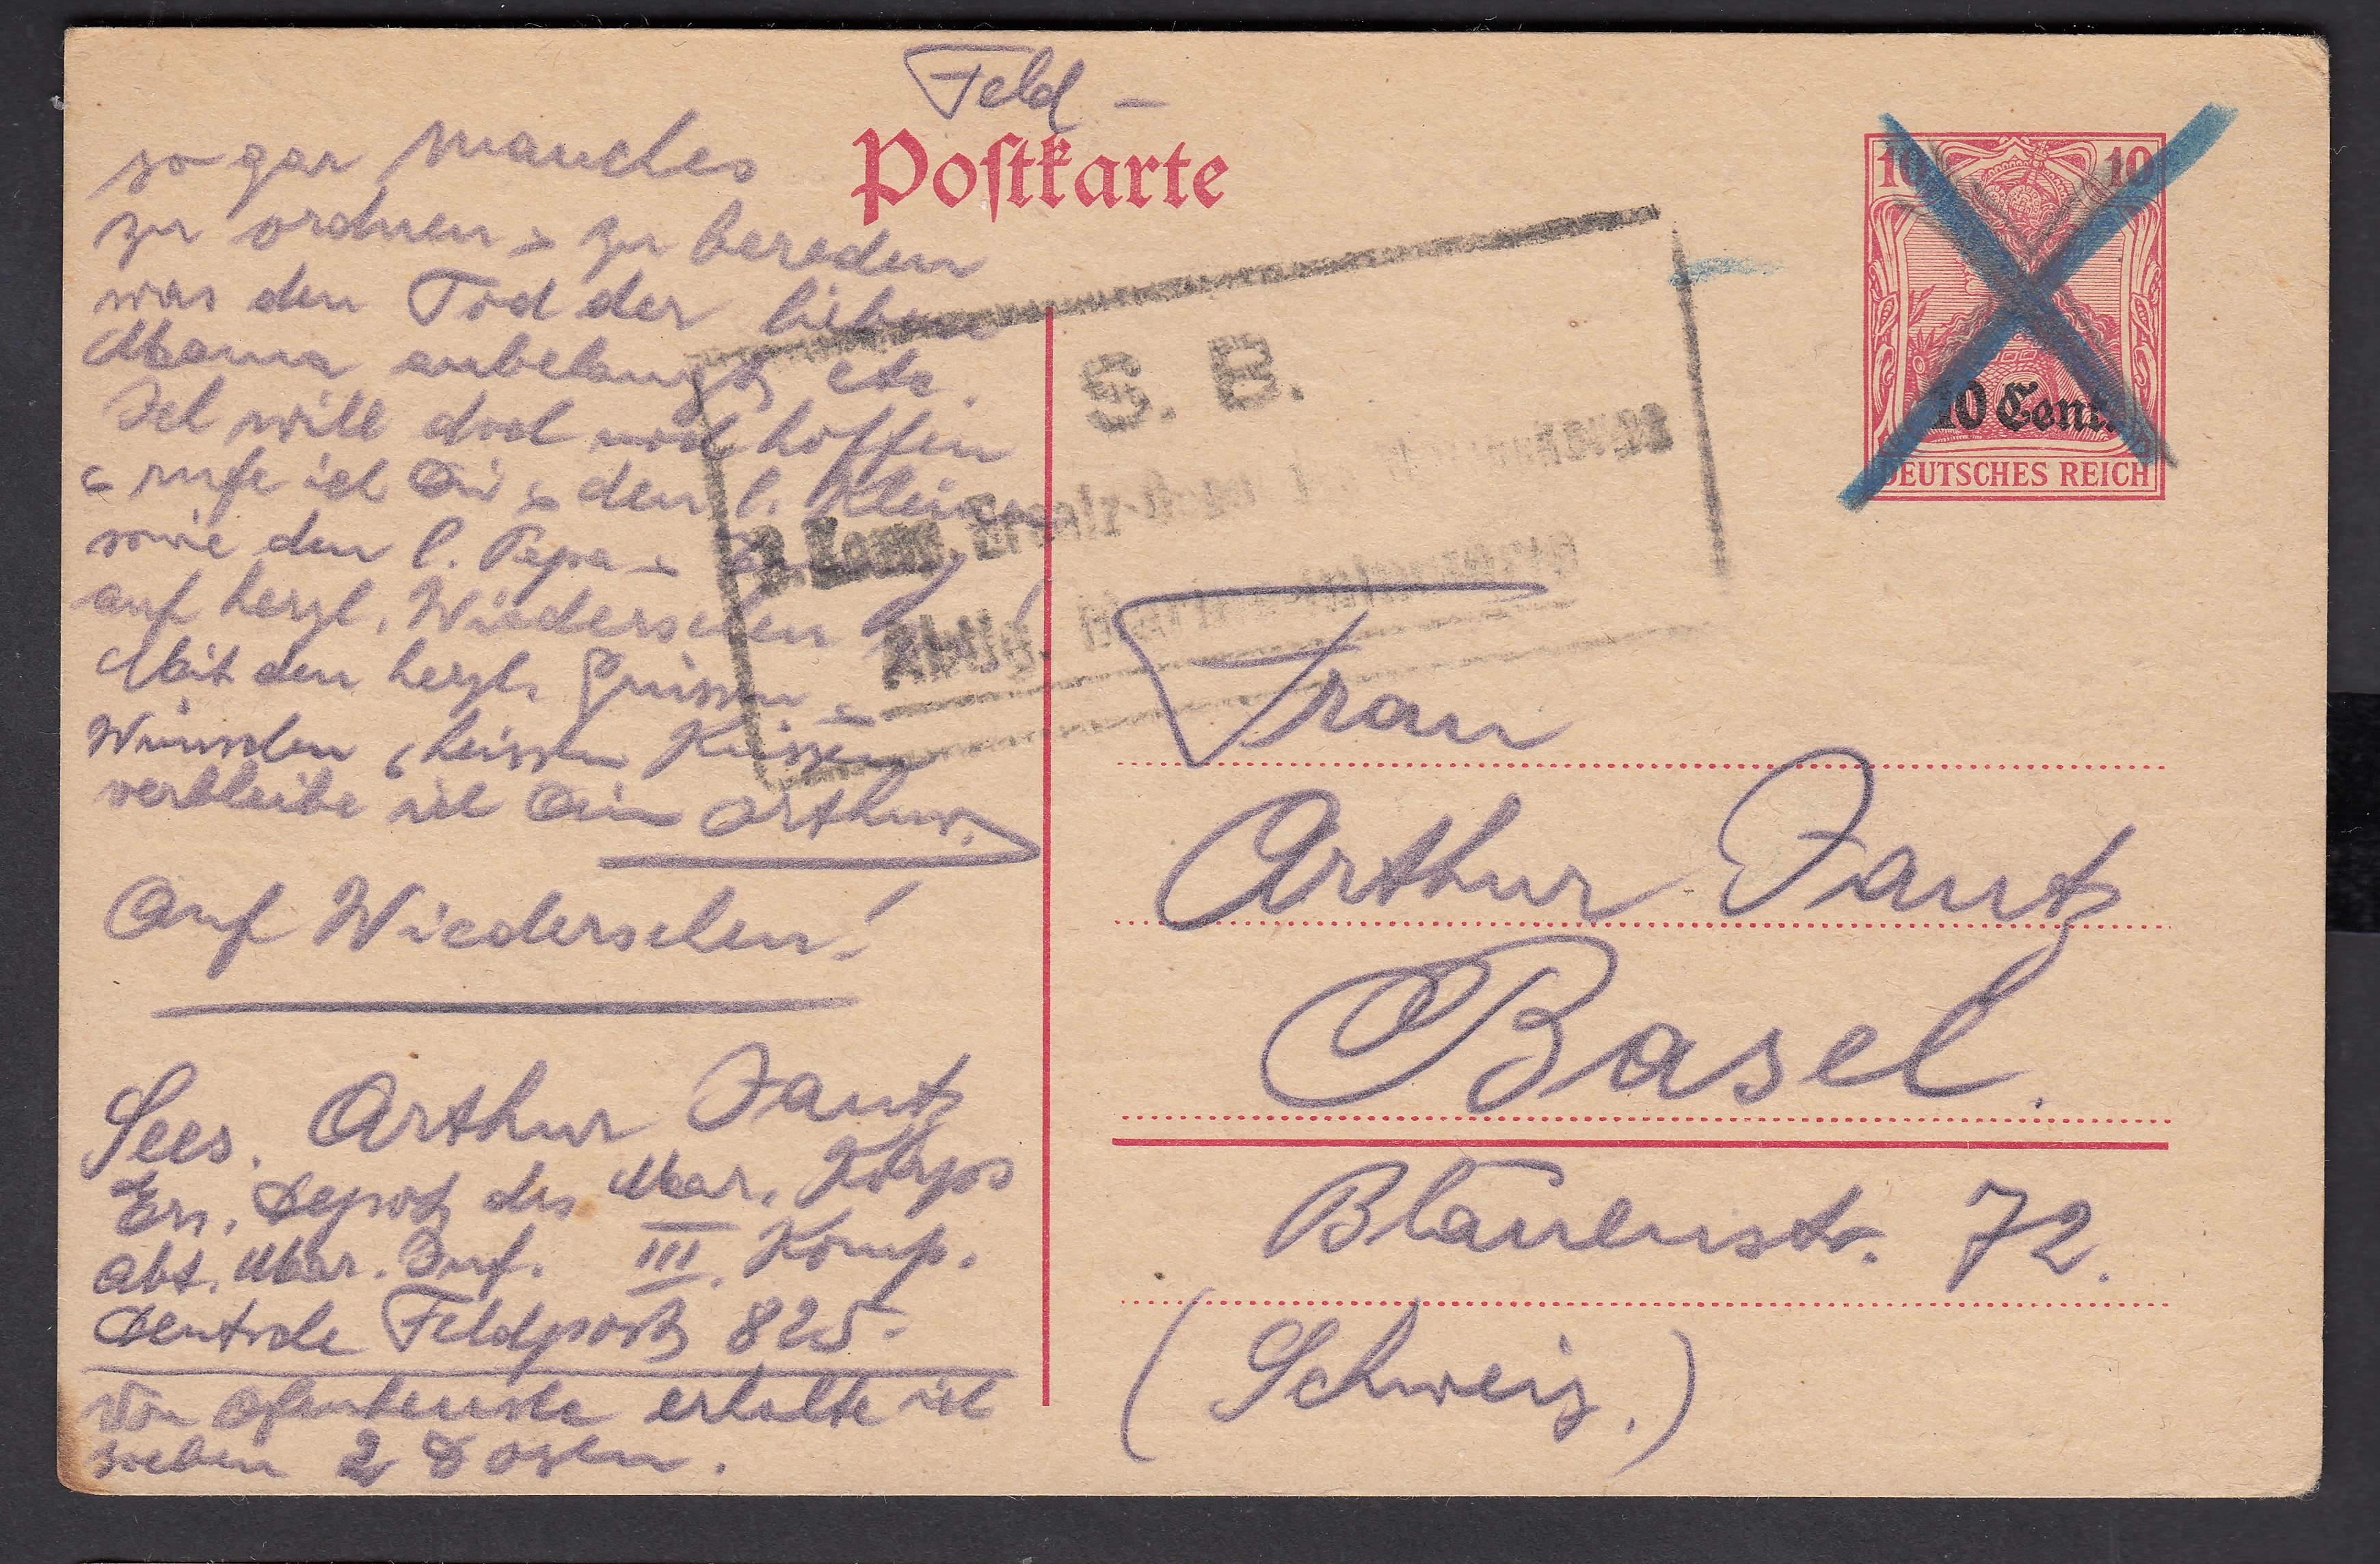 Feld -
Postkarte
so gar manches
zu ordnen & zu bereden
was den Tod der lieben
Mama anbelangt, etc.
Ich will doch noch hoffen
& rufe ich Dir & den l. Kleinen
sowie den l. Papa &
auf herzl. Wiedersehen!
Mit den herzl. Grüssen &
Wünschen, heissen Küssen
verbleibe ich Dein Arthur.
Auf Wiedersehen!
Sees. Arthur Jautz
Ers. Depot des Mar. Korps
Abt. Mar. Inf. III. Komp.
Deutsche Feldpost 825.
Von erhalte ich
soeben 2 Dosen.
10 10
10 Cent.
DEUTSCHES REICH
S. B.
3. Komp. Ersatz-
Abtlg. Marine-Infanterie
Frau
Arthur Jautz
Basel.
Blauenstr. 72.
(Schweiz.)